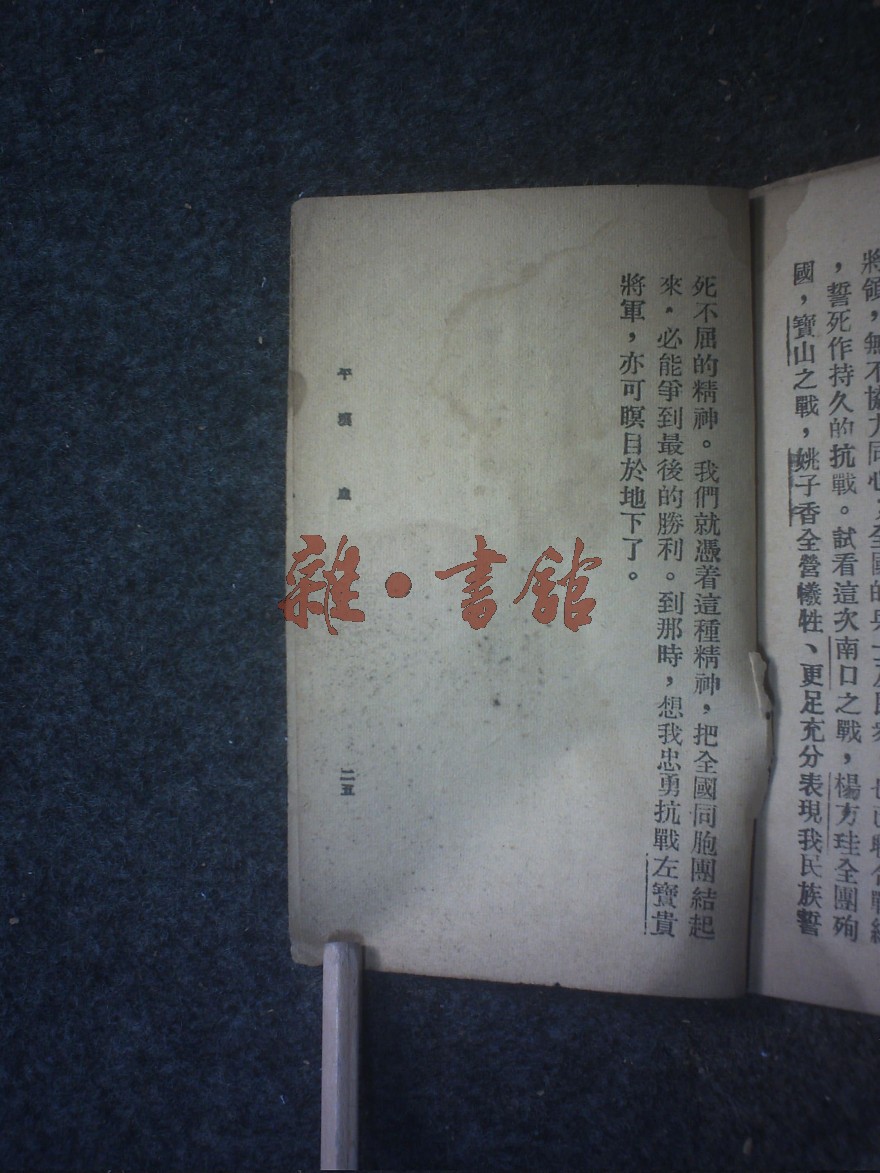 將領,無不協力同心,全國的兵士及民眾,也已聯合戰線
,誓死作持久的抗戰。試看這次南口之戰,楊方珪全團殉
國,寶山之戰,姚子香全營犧牲、更足充分表現我民族誓
死不屈的精神。我們就憑着這種精神,把全國同胞團結起
來。必能爭到最後的勝利。到那時,想我忠勇抗戰左寶貴
將軍,亦可瞑目於地下了。
平壤血
二五
雜·書館